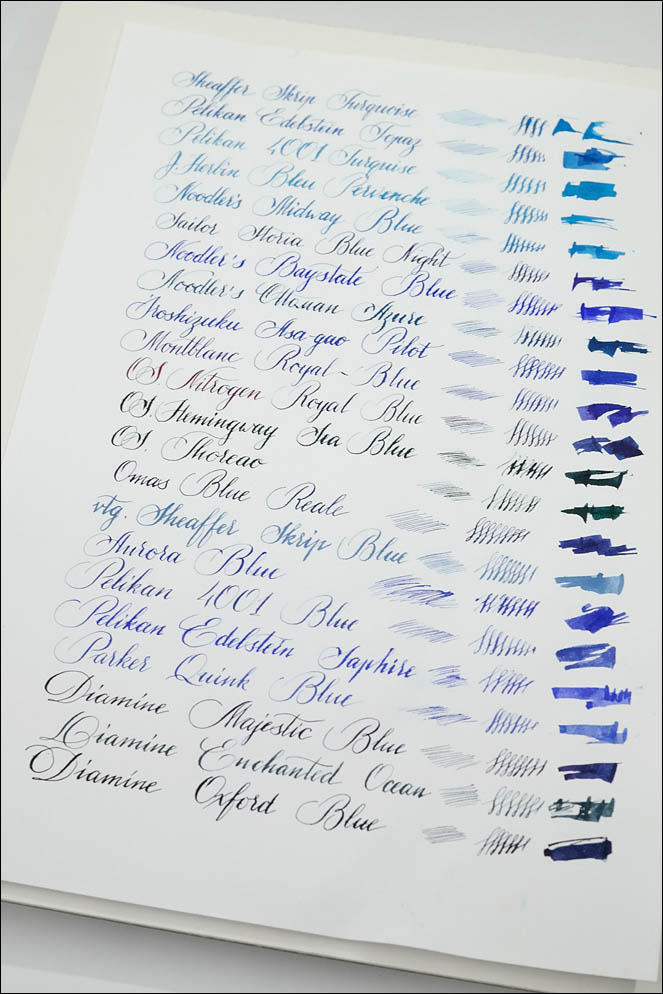 Sheaffer Skrip Turquoise
Pelikan Edelstein Topaz
Pelikan 4001 Turquise
J. Herbin Bleu Pervenche
Noodler's Midway Blue
Sailor Storia Blue Night
Noodler's Baystate Blue
Noodler's Ottoman Azure
Iroshizuku Asa-gao Pilot
Montblanc Royal-Blue
OS Nitrogen Royal Blue
OS. Hemingway Sea Blue
OS. Thoreao
Omas Blue Reale
vtg. Sheaffer Skrip Blue
Aurora Blue
Pelikan 4001 Blue
Pelikan Edelstein Saphire
Parker Quink Blue
Diamine Majestic Blue
Diamine Enchanted Ocean
Diamine Oxford Blue